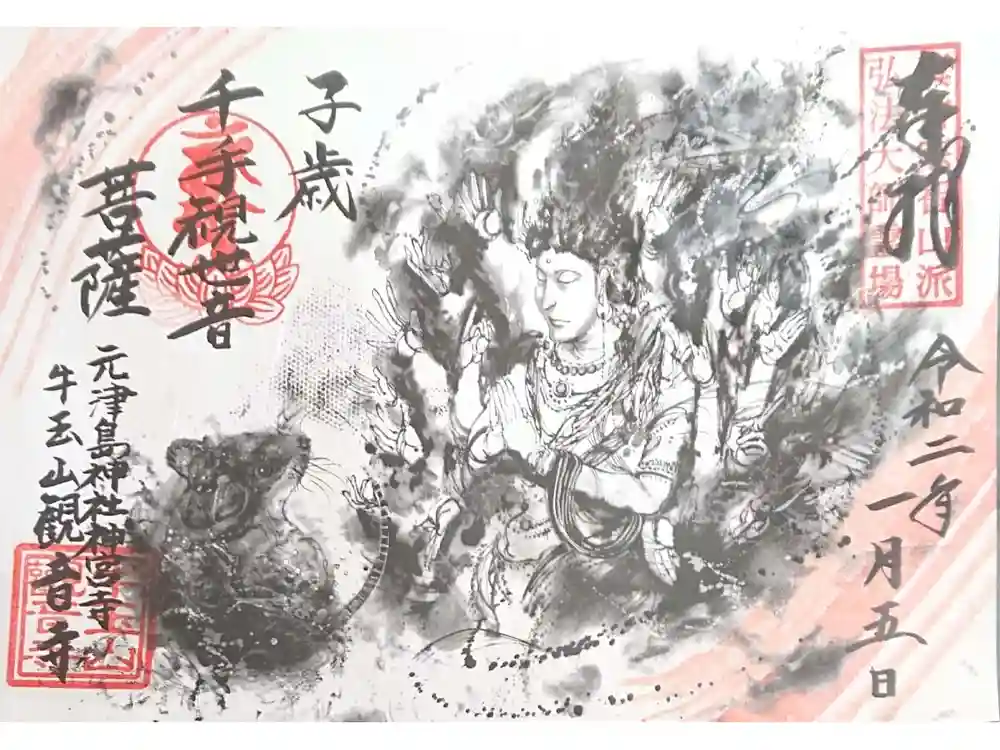 奉拝
弘法大師霊場
令和二年
一月五日
子歳
千手視世音
菩薩
元津島神社神宮寺
牛玉山観音寺